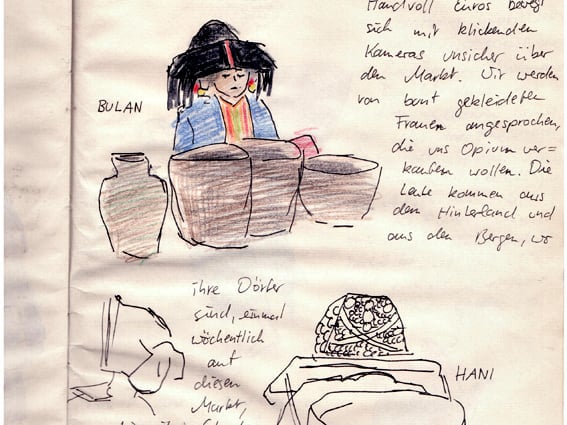 Handvoll Euros bewegt
sich mit klickenden
Kameras unsicher über
den Markt. Wir werden
von bunt gekleideten
Frauen angesprochen,
die uns Opium ver=
kaufen wollen. Die
Leute kommen aus
dem Hinterland und
aus den Bergen, wo
BULAN
ihre Dörfer
sind, einmal
wöchentlich
auf
diesen
Markt,
HANI